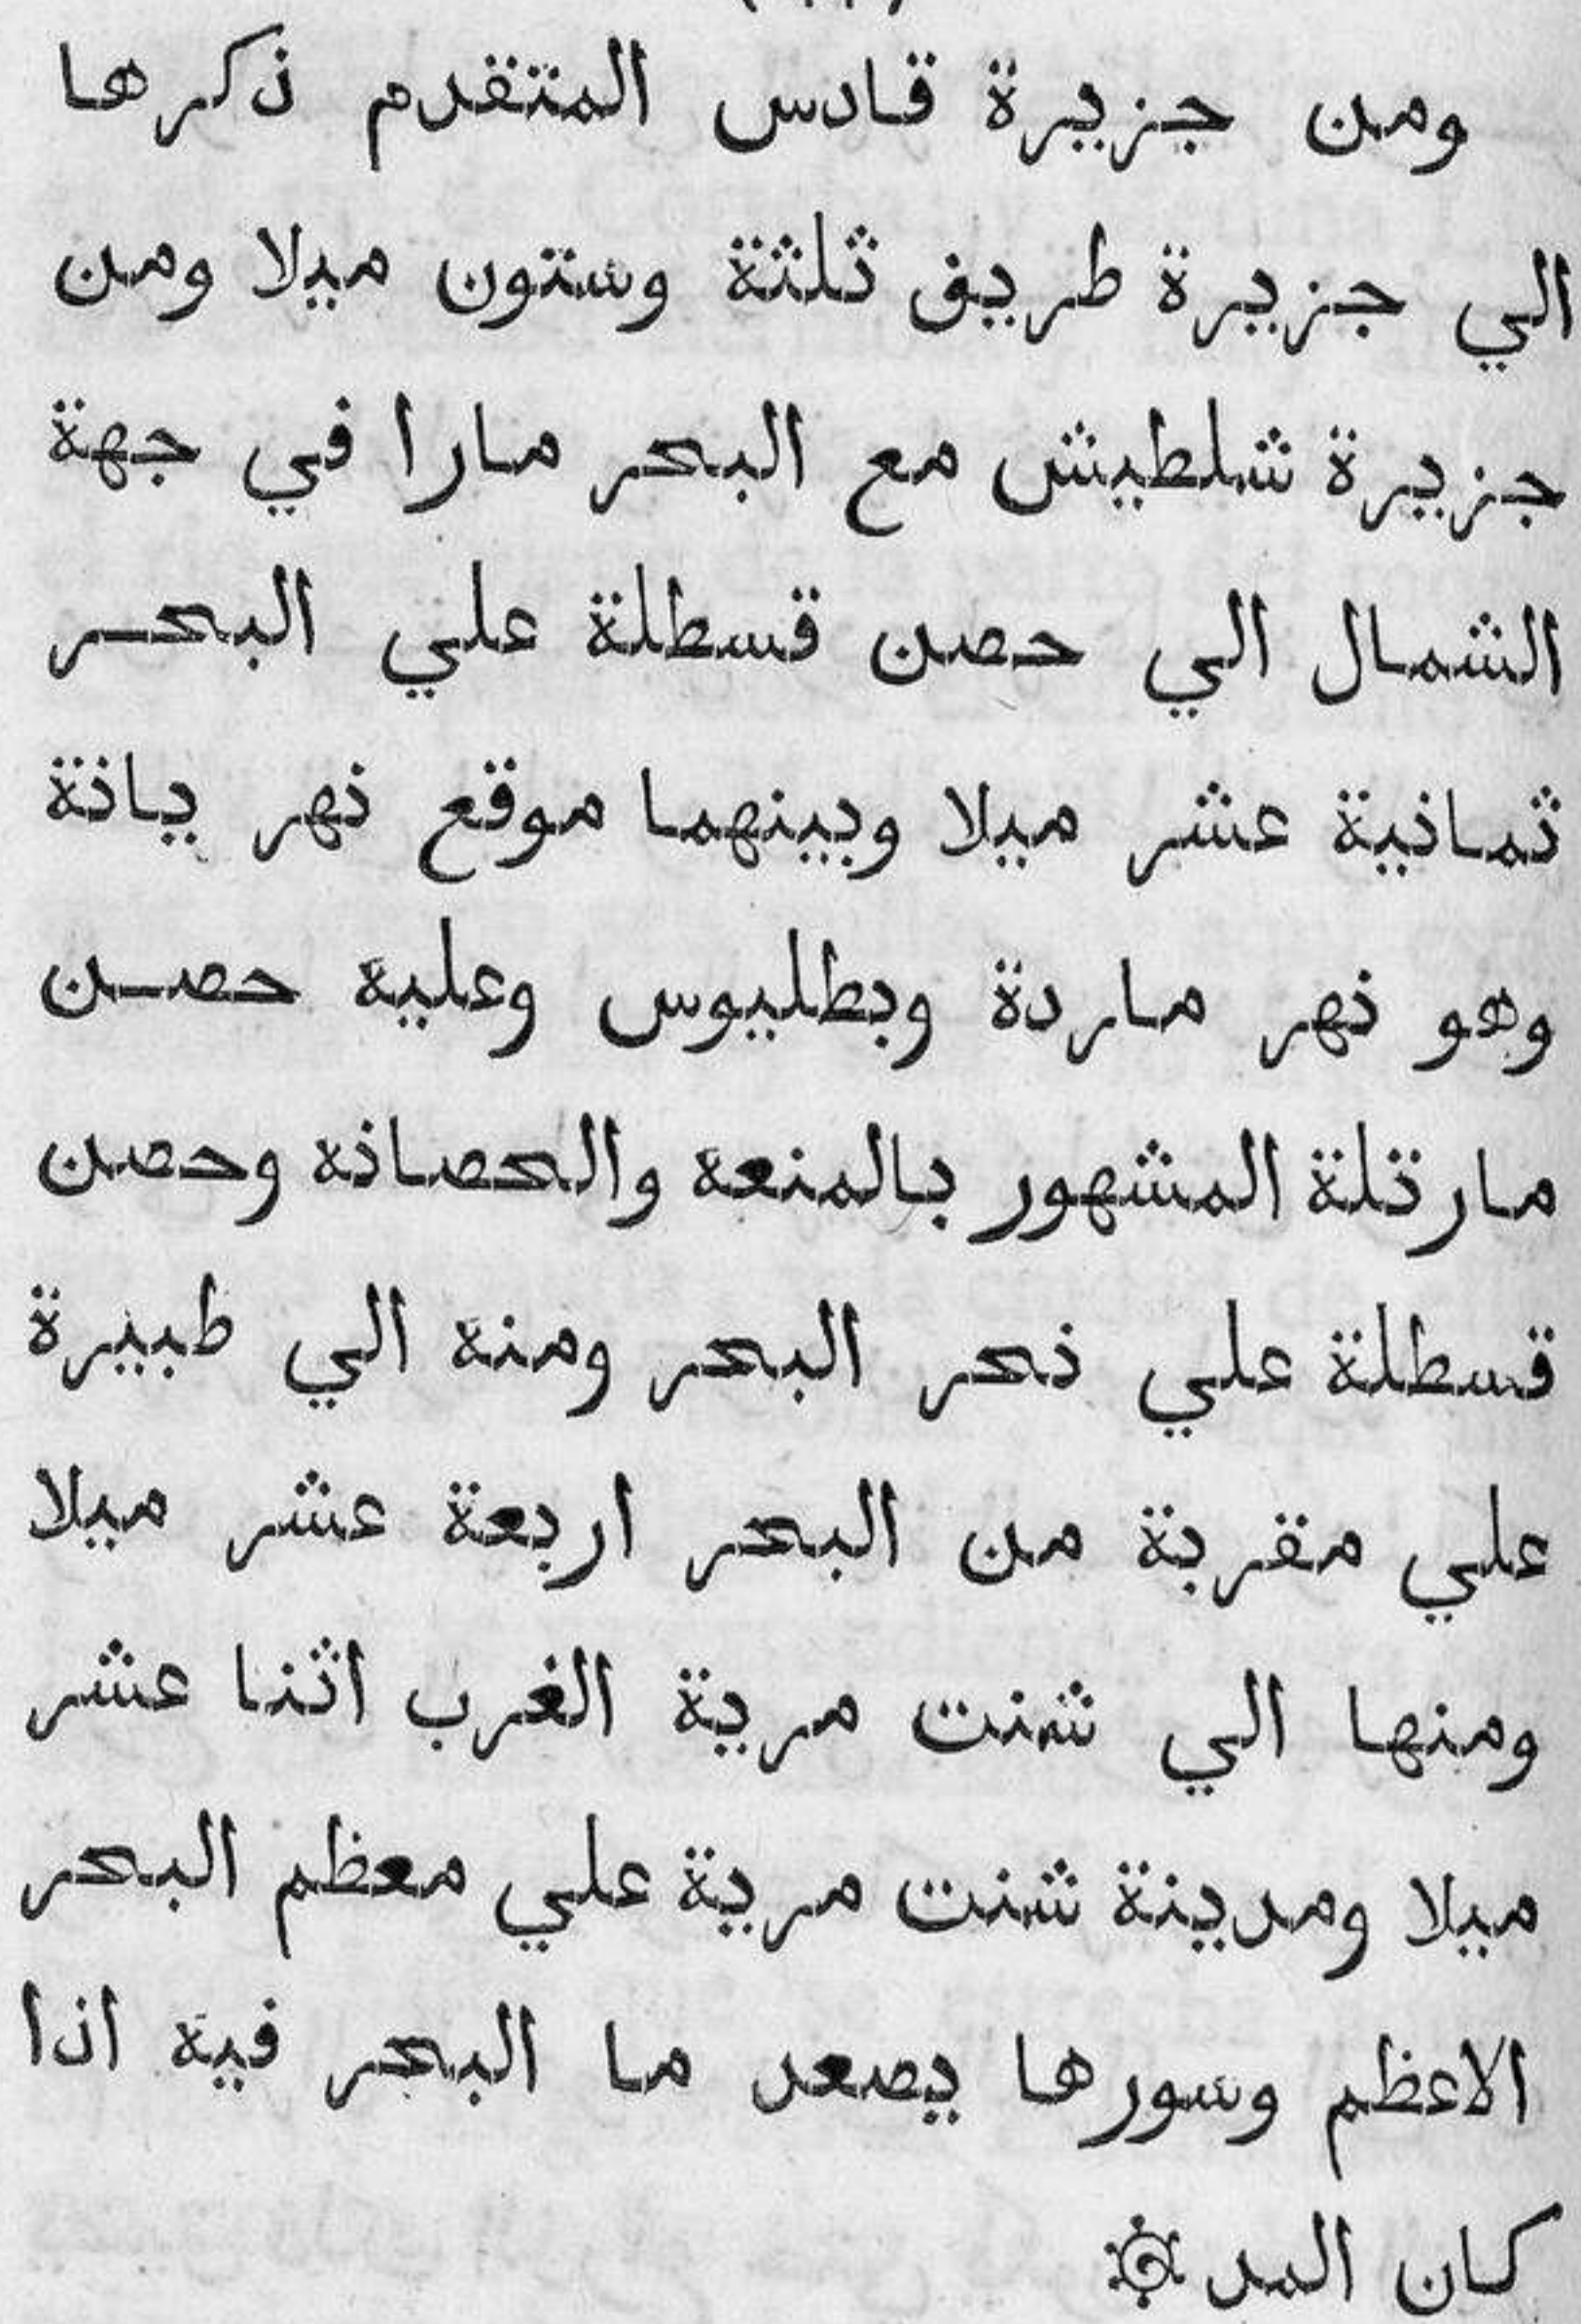 ومن جزيرة قادس المتقدم ذكرها
الي جزيرة طريف ثلثة وستون ميلا ومن
جزيرة شلطيش مع البحر مارا في جهة
الشمال الي حصن قسطلة علي البحر
ثمانية عشر ميلا وبينهما موقع نهر يانة
وهو نهر ماردة وبطليوس وعليه حصن
مارتلة المشهور بالمنعه والحصانه وحصن
قسطلة علي نحر البحر ومنه الي طبيرة
علي مقربة من البحر اربعة عشر ميلا
ومنها الي شنت مرية الغرب اثنا عشر
ميلا ومدينة شنت مرية علي معظم البحر
الاعظم وسورها يصعد ما البحر فيه اذا
كان المد